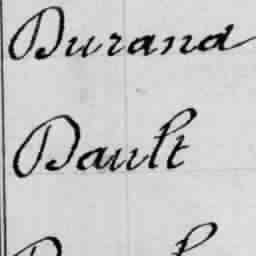 Durand
Dault